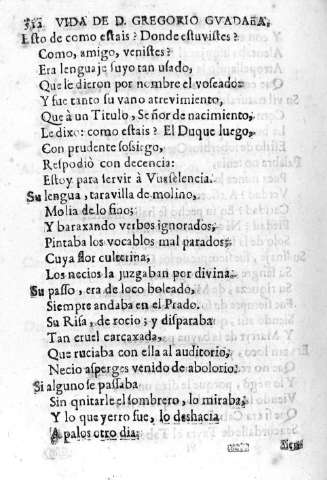 312 VIDA DE D. GREGORIO GVADAÑA,
Esto de como estais? Donde estuvistes?
Como, amigo, venistes?
Era lenguaje suyo tan usado,
Que le dieron por nombre el voseado:
Y fue tanto su vano atrevimiento,
Que à un Titulo, Señor de nacimiento,
Le dixo: como estais? El Duque luego,
Con prudente sossiego,
Respodiò con decencia:
Estoy para servir à Vusselencia.
Su lengua, taravilla de molino,
Molia de lo fino;
Y baraxando verbos ignorados,
Pintaba los vocablos mal parados;
Cuya flor culterina,
Los necios la juzgaban por divina.
Su passo, era de loco boleado,
Siempre andaba en el Prado.
Su Risa, de rocio; y disparaba
Tan cruel carcaxada,
Que ruciaba con ella al auditorio,
Necio asperges venido de abolorio.
Si alguno se passaba
Sin qnitarle el sombrero, lo miraba,
Y lo que yerro fue, lo deshacia
A palos otro dia;